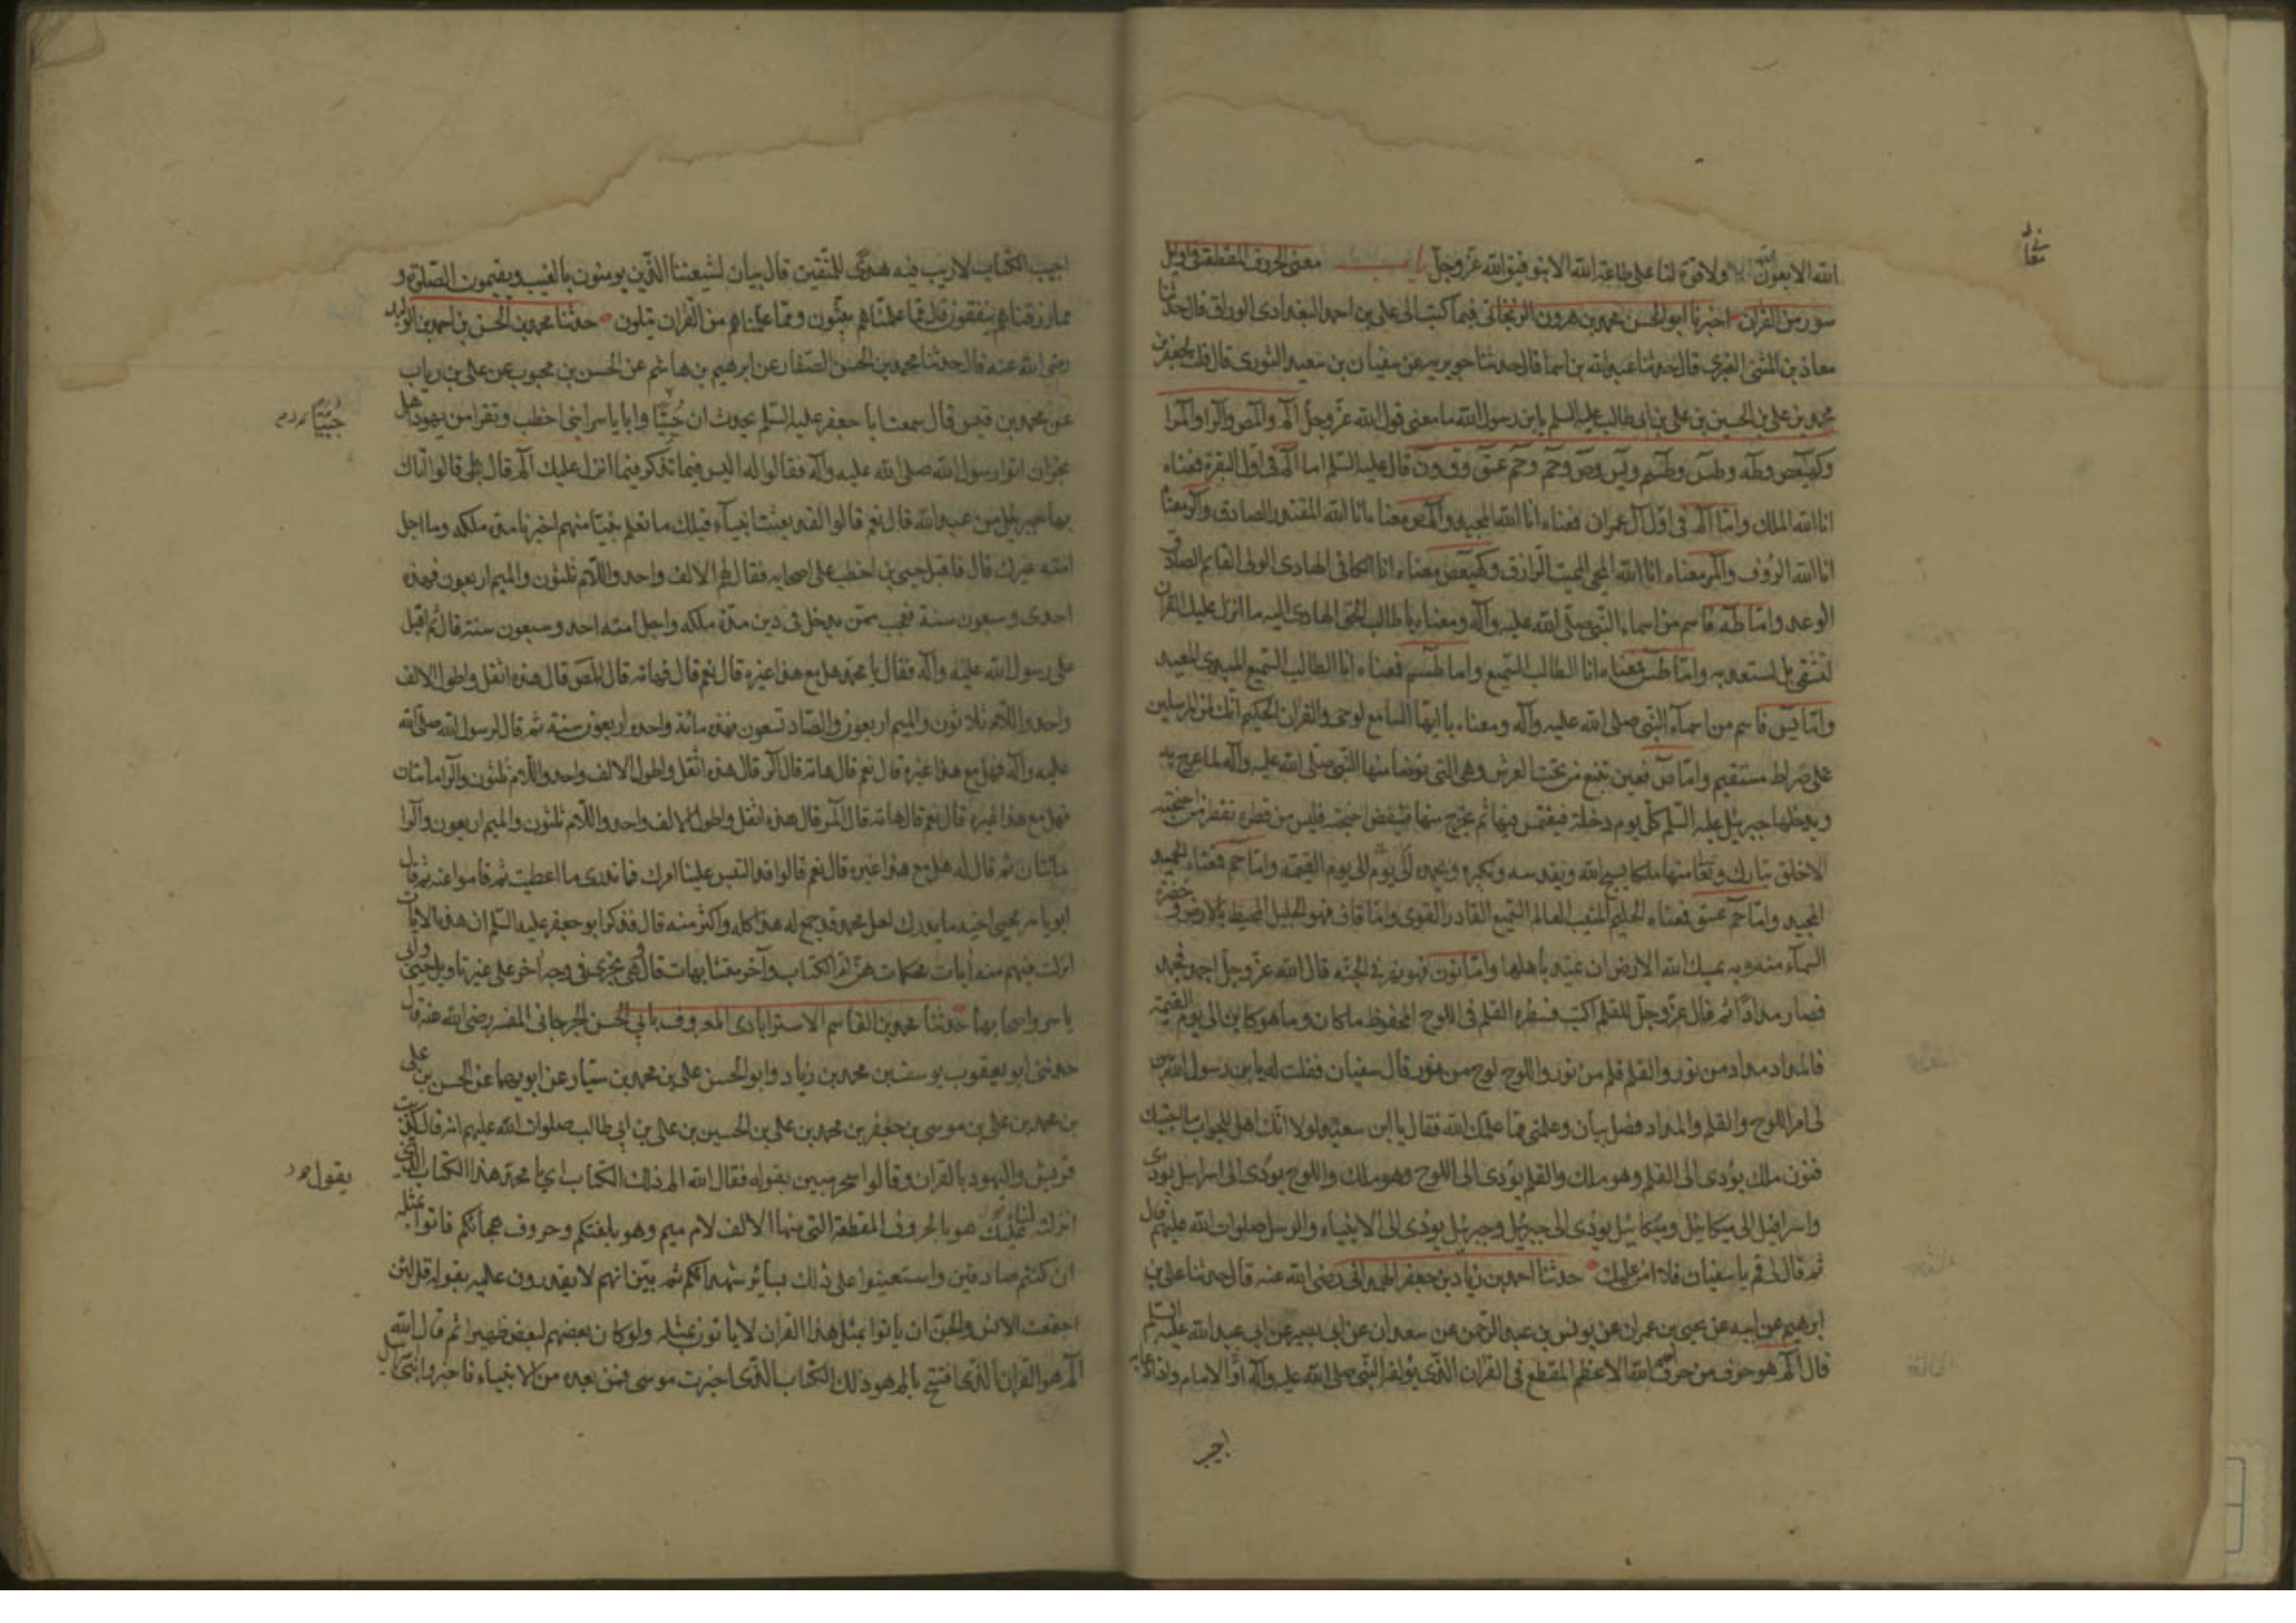 معانی
الله الا بعون الله ولا قوة لنا على طاعة الله الا بتوفيق الله عز وجل باب معنى الحروف المقطعة فى اوايل
سور من القرآن اخبرنا ابو الحسن محمد بن هرون الزنجانى فيما كتب الى على بن احمد البغدادى الوراق قال حدثنا
معاذ بن المثنى العنبرى قال حدثنا عبد الله بن اسما قال حدثنا جويريه عن سفيان بن سعيد الثورى قال قلت لجعفر بن
محمد بن على بن الحسين بن على بن ابى طالب عليه السلم يابن رسول الله ما معنى قول الله عز وجل الم والمص والر والمر
وكهيعص وطه وطس وطسم ويس وص وحم وحم عسق وق ون قال عليه السلم اما الم فى اول البقرة فمعناه
انا الله الملك واما الم فى اول آل عمران فمعناه انا الله المجيد والمص معناه انا الله المقتدر الصادق والر معناه
انا الله الرؤف والمر معناه انا الله المحيى المميت الرازق وكهيعص معناه انا الكافى الهادى الولى العالم الصادق
الوعد واما طه فاسم من اسماء النبى صلى الله عليه وآله ومعناه يا طالب الحق الهادى اليه ما انزل عليك القرآن
لتشقى بل لتسعد به واما طس فمعناه انا الطالب السميع واما طسم فمعناه انا الطالب السميع المبدئ المعيد
واما يس فاسم من اسمآء النبى صلى الله عليه وآله ومعناه يا ايها السامع لوحى والقرآن الحكيم انك لمن المرسلين
على صراط مستقيم واما ص فعين تنبع من تحت العرش وهى التى توضأ منها النبى صلى الله عليه وآله لما عرج به
ويدخلها جبرئيل عليه السلم كل يوم دخلة فيغتمس فيها ثم يخرج منها فينفض اجنحته فليس من قطرة تقطر من اجنحته
الا خلق تبارك وتعا منها ملكا يسبح الله ويقدسه ويكبره ويحمده الى يوم القيمة واما حم فمعناه الحميد
المجيد واما حم عسق فمعناه الحليم المثيب العالم السميع القادر القوى واما قاف فهو الجبل المحيط بالارض وخضرة
السمآء منه وبه يمسك الله الارض ان تميد باهلها واما نون فهو نهر فى الجنة قال الله عز وجل اجمد فجمد
فصار مدادا ثم قال عز وجل للقلم اكتب فسطر القلم فى اللوح المحفوظ ما كان وما هو كاين الى يوم القيمة
فالمداد مداد من نور والقلم قلم من نور واللوح لوح من نور قال سفيان فقلت له يابن رسول الله بين
لى امر اللوح والقلم والمداد فضل بيان وعلمنى مما علمك الله فقال يا ابن سعيد لولا انك اهل للجواب ما اجبتك
فنون ملك يؤدى الى القلم وهو ملك والقلم يؤدى الى اللوح وهو ملك واللوح يؤدى الى اسرافيل يؤدى
واسرافيل الى ميكائيل وميكائيل يؤدى الى جبرئيل وجبرئيل يؤدى الى الانبياء والرسل صلوات الله عليهم قال
ثم قال لى قم يا سفيان فلا آمن عليك حدثنا احمد بن زياد بن جعفر الهمدانى رضى الله عنه قال حدثنا على بن
ابرهيم عن ابيه عن يحيى بن عمران عن يونس بن عبد الرحمن عن سعدان عن ابى بصير عن ابى عبد الله عليه السلم
قال الم هو حرف من حروف اسم الله الاعظم المقطع فى القرآن الذى يؤلفه النبى صلى الله عليه وآله او الامام واذا دعا به
اجيب
اجيب الكتاب لا ريب فيه هدى للمتقين قال بيان لشيعتنا الذين يومنون بالغيب ويقيمون الصلوة و
مما رزقناهم ينفقون قال مما علمناهم يبثون ومما علمناهم من القرآن يتلون حدثنا محمد بن الحسن بن احمد بن الوليد
رضى الله عنه قال حدثنا محمد بن الحسن الصفار عن ابرهيم بن هاشم عن الحسن بن محبوب عن على بن رياب
عن محمد بن قيس قال سمعت ابا جعفر عليه السلم يحدث ان حييا وابا ياسر ابنى اخطب ونفرا من يهود اهل
نجران اتوا رسول الله صلى الله عليه وآله فقالوا له اليس فيما تذكر فيما انزل عليك الم قال بلى قالوا اتاك
بها جبرئيل من عند الله قال نعم قالوا لقد بعثت انبياء قبلك ما نعلم نبيا منهم اخبرنا مدة ملكه وما اجل
امته غيرك قال فاقبل حيى بن اخطب على اصحابه فقال لهم الالف واحد واللام ثلثون والميم اربعون فهذه
احدى وسبعون سنة فعجب ممن يدخل فى دين مدة ملكه واجل امته احد وسبعون سنة قال ثم اقبل
على رسول الله عليه وآله فقال يا محمد هل مع هذا غيره قال نعم قال فهاته قال المص قال هذه اثقل واطول الالف
واحد واللام ثلاثون والميم اربعون والصاد تسعون فهذه مائة واحد واربعون سنة ثم قال لرسول الله صلى الله
عليه وآله فهل مع هذا غيره قال نعم قال هاته قال الر قال هذه اثقل واطول الالف واحد واللام ثلثون والرا مأتان
فهل مع هذا غيره قال نعم قال هاته قال المر قال هذه اثقل واطول الالف واحد واللام ثلثون والميم اربعون والرا
مائتان ثم قال له هل مع هذا غيره قال نعم قالوا قد التبس علينا امرك فما ندرى ما اعطيت ثم قاموا عنه ثم قال
ابو ياسر لحيى اخيه ما يدريك لعل محمد قد جمع له هذا كله واكثر منه قال فذكر ابو جعفر عليه السلم ان هذه الايات
انزلت فيهم منه آيات محكمات هن ام الكتاب وآخر متشابهات قال وهى تجرى فى وجه آخر على غير تاويل حيى وابى
ياسر واصحابهما حدثنا محمد بن القاسم الاسترابادى المعروف بابى الحسن الجرجانى المفسر رضى الله عنه قال
حدثنى ابو يعقوب يوسف بن محمد بن زياد وابو الحسن على بن محمد بن سيار عن ابويهما عن الحسن بن على
بن محمد بن على بن موسى بن جعفر بن محمد بن على بن الحسين بن على بن ابى طالب صلوات الله عليهم انه قال كذبت
قريش واليهود بالقرآن وقالوا سحر مبين بقوله فقال الله الم ذلك الكتاب اى يا محمد هذا الكتاب الذى
انزلته عليك هو بالحروف المقطعة التى منها الالف لام ميم وهو بلغتكم وحروف هجائكم فاتوا بمثله
ان كنتم صادقين واستعينوا على ذلك بسائر شهدائكم ثم بين انهم لا يقدرون عليه بقوله قل لئن
اجتمعت الانس والجن ان ياتوا بمثل هذا القرآن لا ياتون بمثله ولو كان بعضهم لبعض ظهيرا ثم قال الله
الم هو القرآن الذى افتتح بالم هو ذلك الكتاب الذى اخبرت موسى فمن بعده من الانبياء فاخبروا بنى
يقول